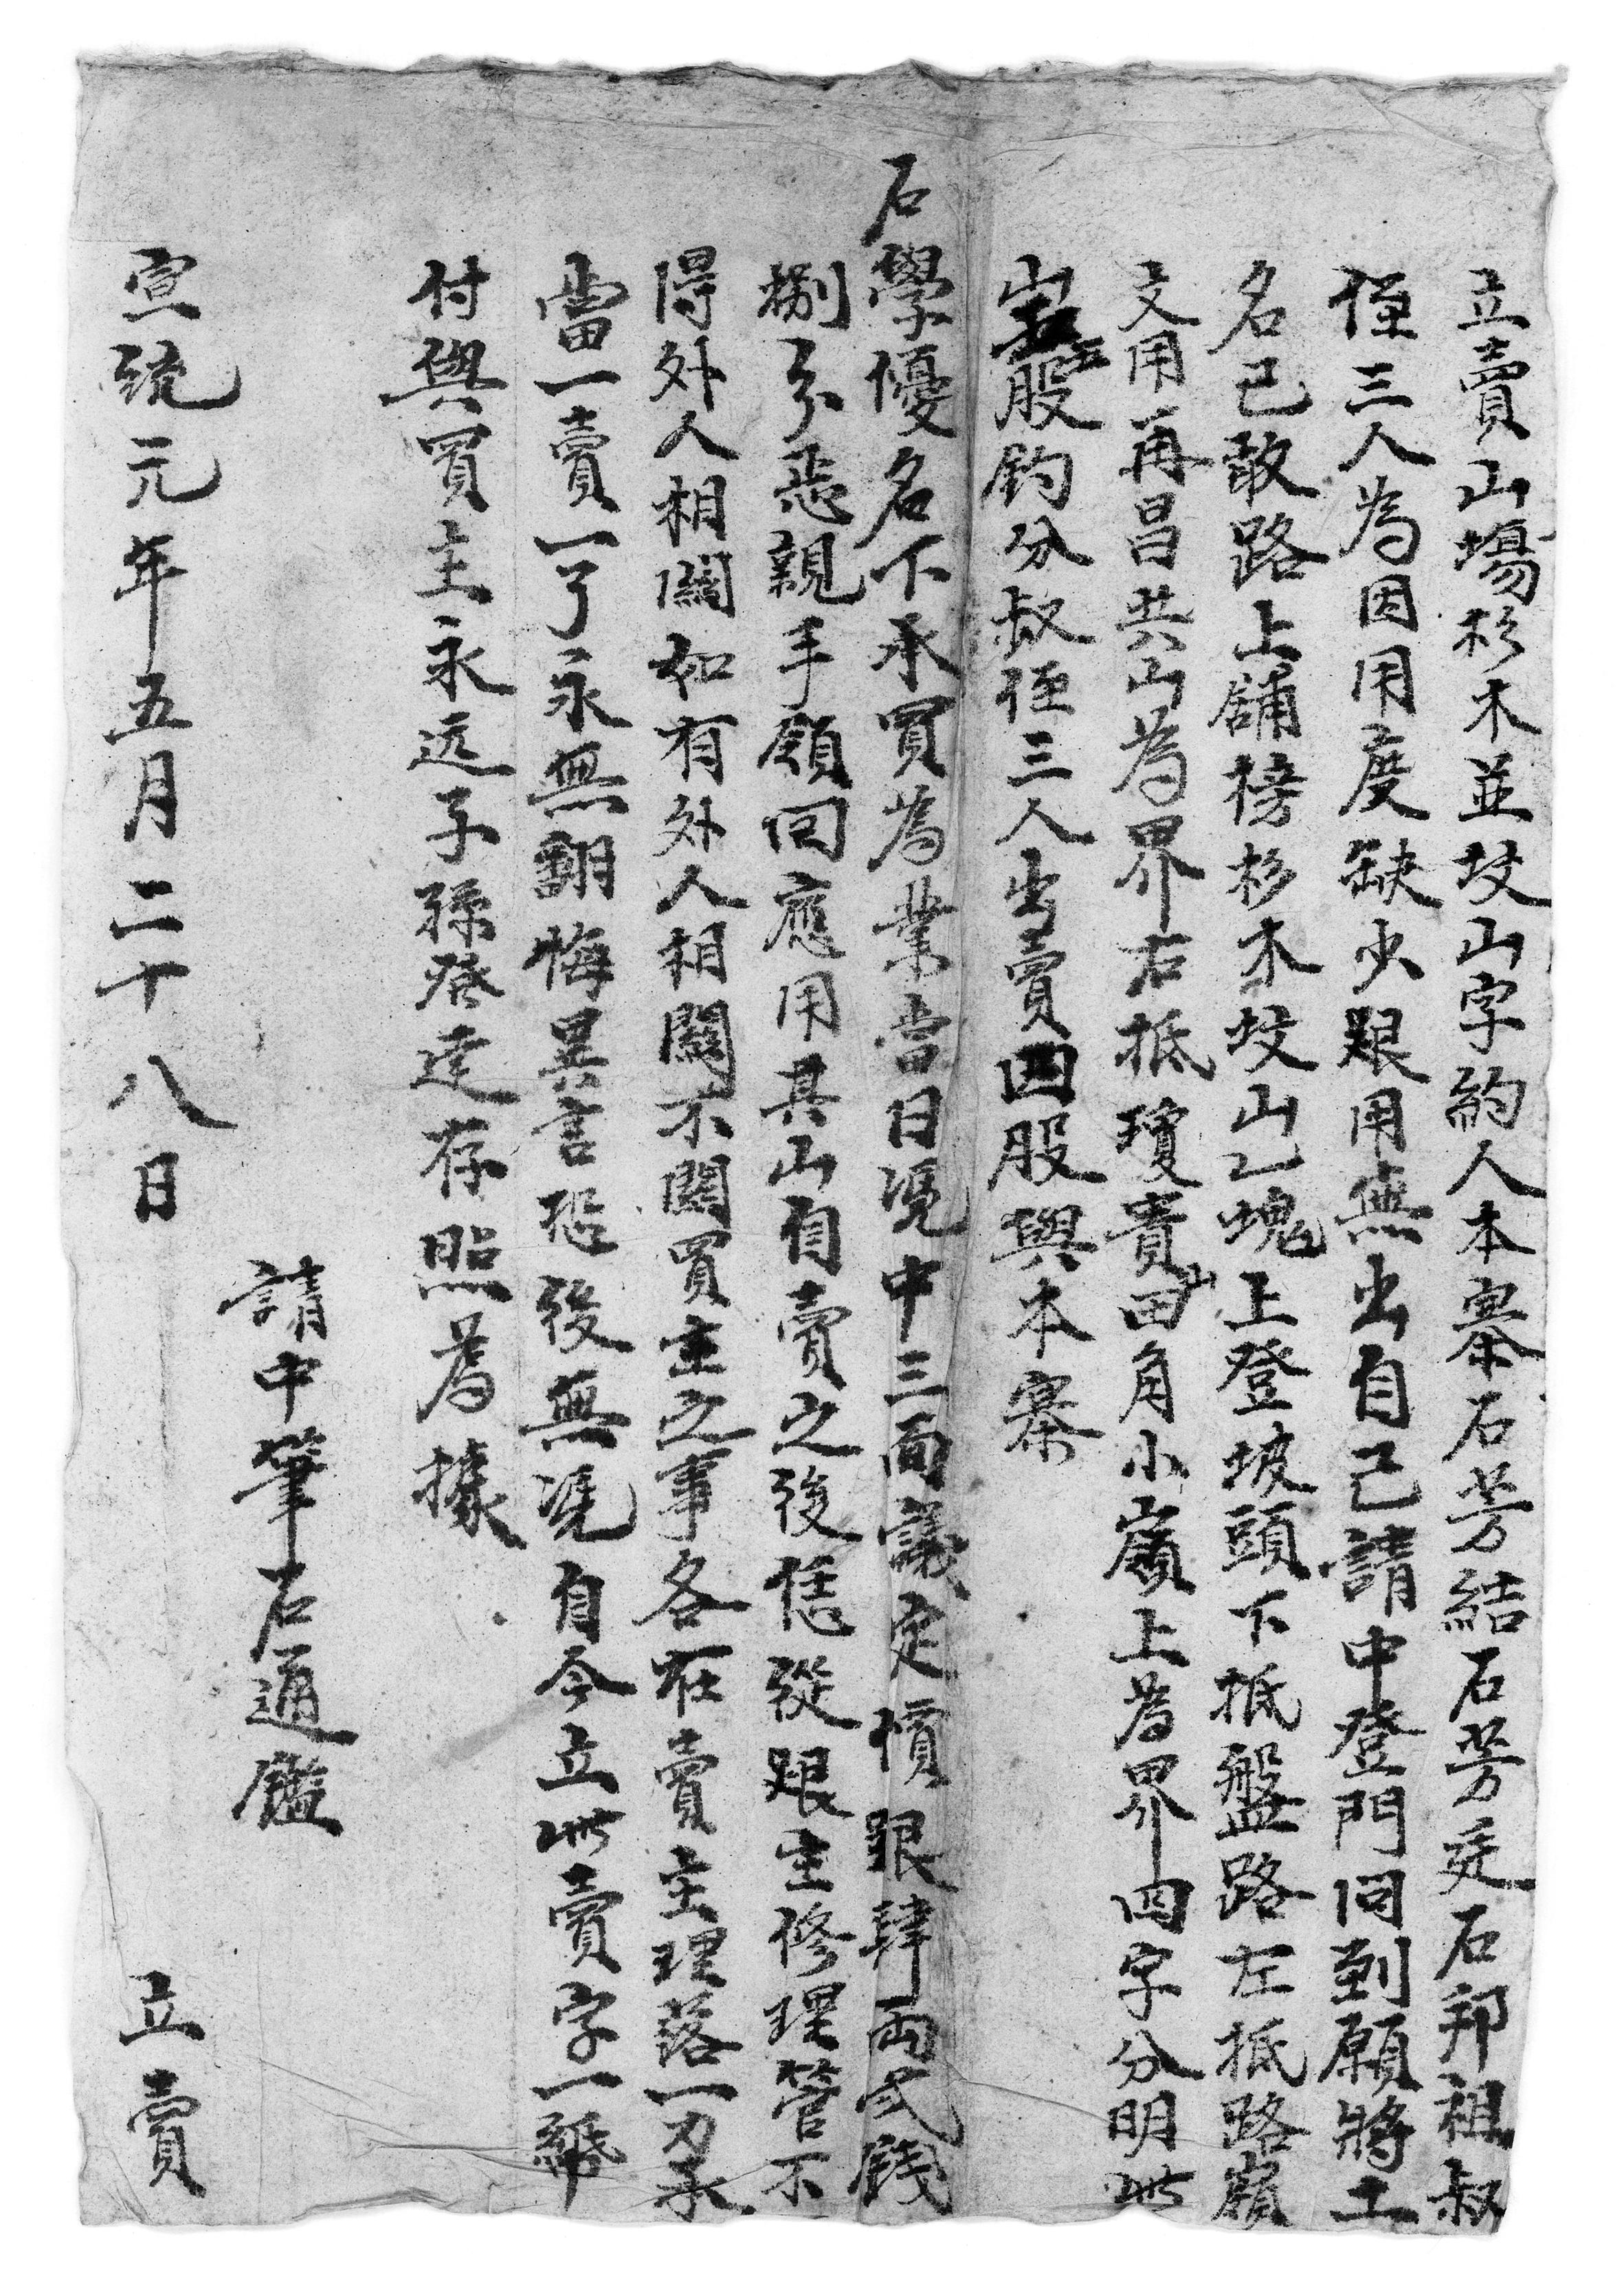 立賣山塲杉木並坟山字約人本寨石芳結石芳廷石邦祖叔
侄三人為因用度缺少銀用無出自己請中登門问到願將土
名己敢路上舖榜杉木坟山乙塊上登坡頭下抵盤路左抵路嶺
文用再昌共山為界右抵瓊貴山田角小嶺上為界四字分明此
山五股鈞分叔侄三人出賣四股與本寨
石學優名下承買為業当日凴中三面議定價銀肆両弍錢
捌分悉親手領回應用其山自賣之後恁從銀主修理管不
得外人相關如有外人相關不關買主之事各在賣主理落一力承
當一賣一了永無翻悔異言恐後無凴自今立此賣字一紙
付與買主永远子孫發達存照為據
請中筆石通鑑
宣統元年五月二十八日 立賣